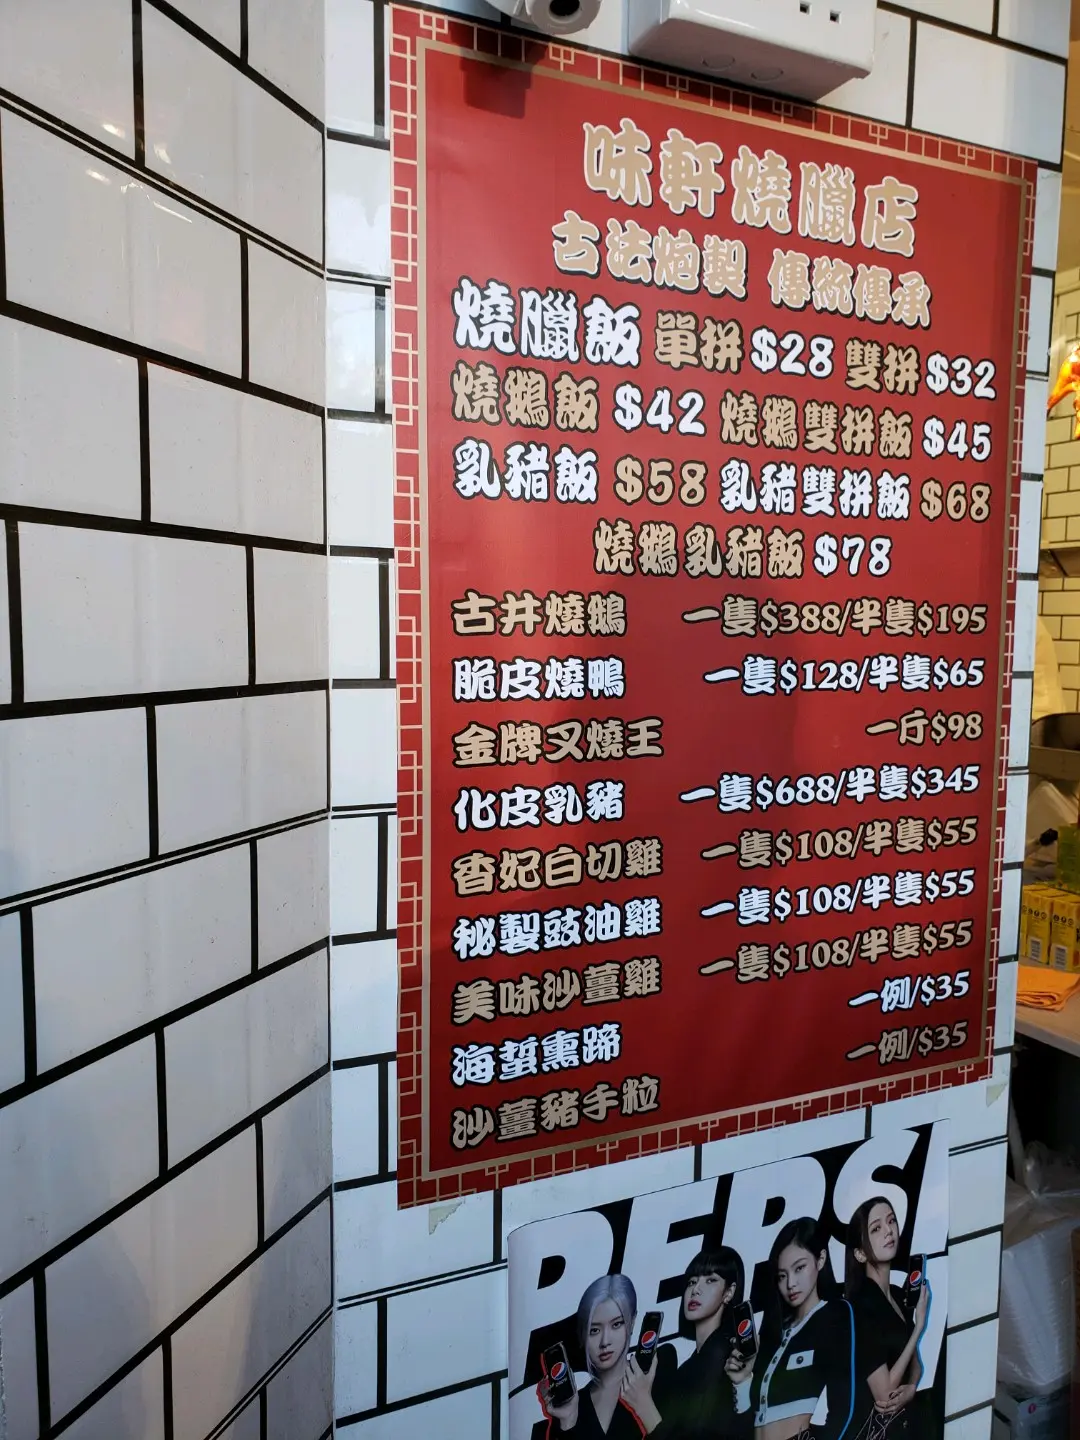 味軒燒臘店
古法炮製 傳統傳承
燒臘飯 單拼 $28 雙拼 $32
燒鵝飯 $42 燒鵝雙拼飯 $45
乳豬飯 $58 乳豬雙拼飯 $68
燒鵝乳豬飯 $78
古井燒鵝 一隻$388/半隻$195
脆皮燒鴨 一隻$128/半隻$65
金牌叉燒王 一斤$98
化皮乳豬 一隻$688/半隻$345
香妃白切雞 一隻$108/半隻$55
秘製豉油雞 一隻$108/半隻$55
美味沙薑雞 一隻$108/半隻$55
海蜇熏蹄 一例/$35
沙薑豬手粒 一例/$35
PEPSI